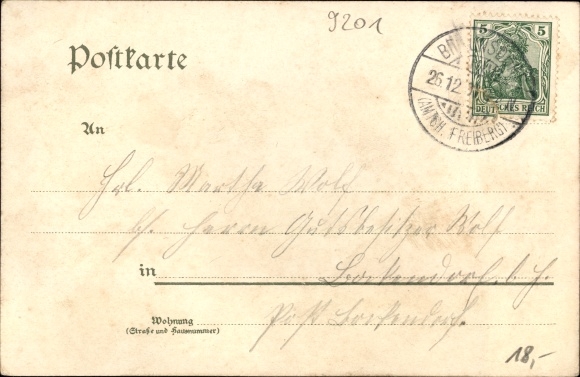 9201
Postkarte
5 5
DEUTSCHES REICH
26.12.
FREIBERG
An
Frl. Martha Wolf
Herrn Gutsbesitzer Wolf
in Bockendorf b. H.
Wohnung
(Straße und Hausnummer)
Post Bockendorf.
18,-